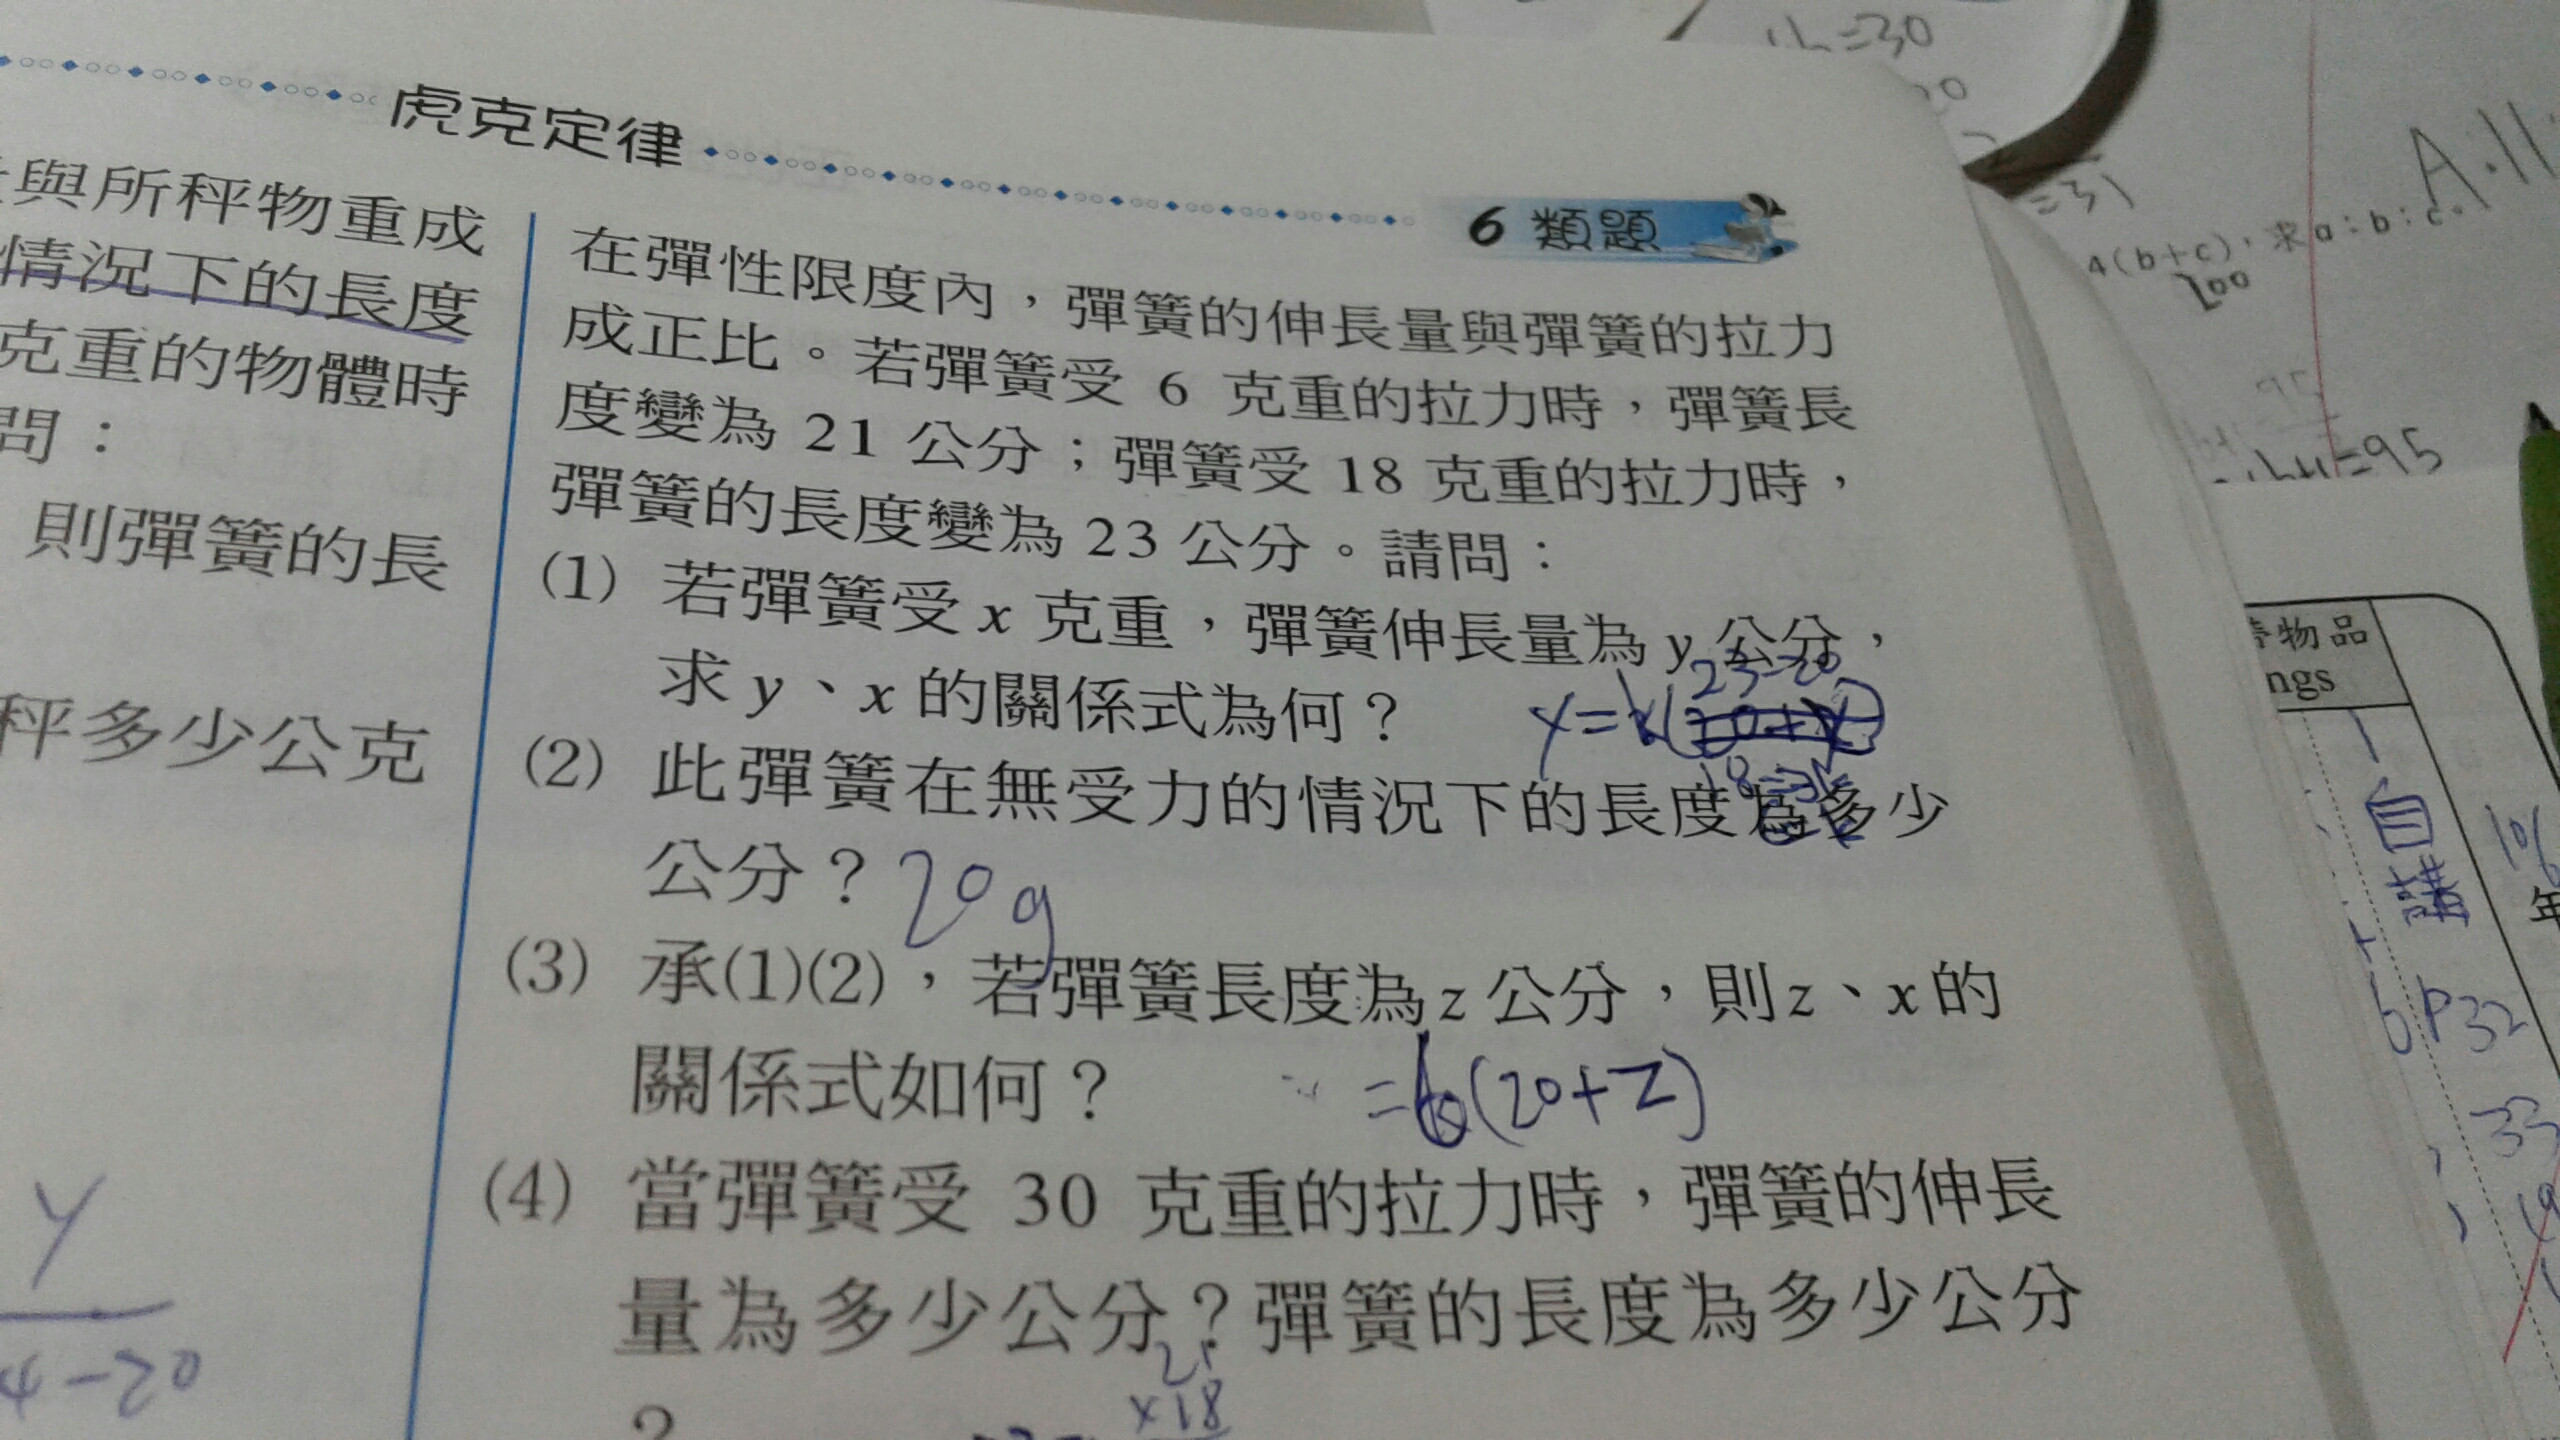 虎克定律
與所秤物重成
情況下的長度
克重的物體時
問：
則彈簧的長
秤多少公克
y
4-20
6 類題
在彈性限度內，彈簧的伸長量與彈簧的拉力
成正比。若彈簧受 6 克重的拉力時，彈簧長
度變為 21 公分；彈簧受 18 克重的拉力時，
彈簧的長度變為 23 公分。請問：
(1) 若彈簧受 x 克重，彈簧伸長量為 y 公分，
求 y、x 的關係式為何？
23-20
(2) 此彈簧在無受力的情況下的長度為多少
公分？ 20g
(3) 承(1)(2)，若彈簧長度為 z 公分，則 z、x 的
關係式如何？ (20+Z)
(4) 當彈簧受 30 克重的拉力時，彈簧的伸長
量為多少公分？彈簧的長度為多少公分
？
x18
=30
=31
4(b+c)，求a：b：c。
200
=95
物品
ngs
自
講
P32
33
年